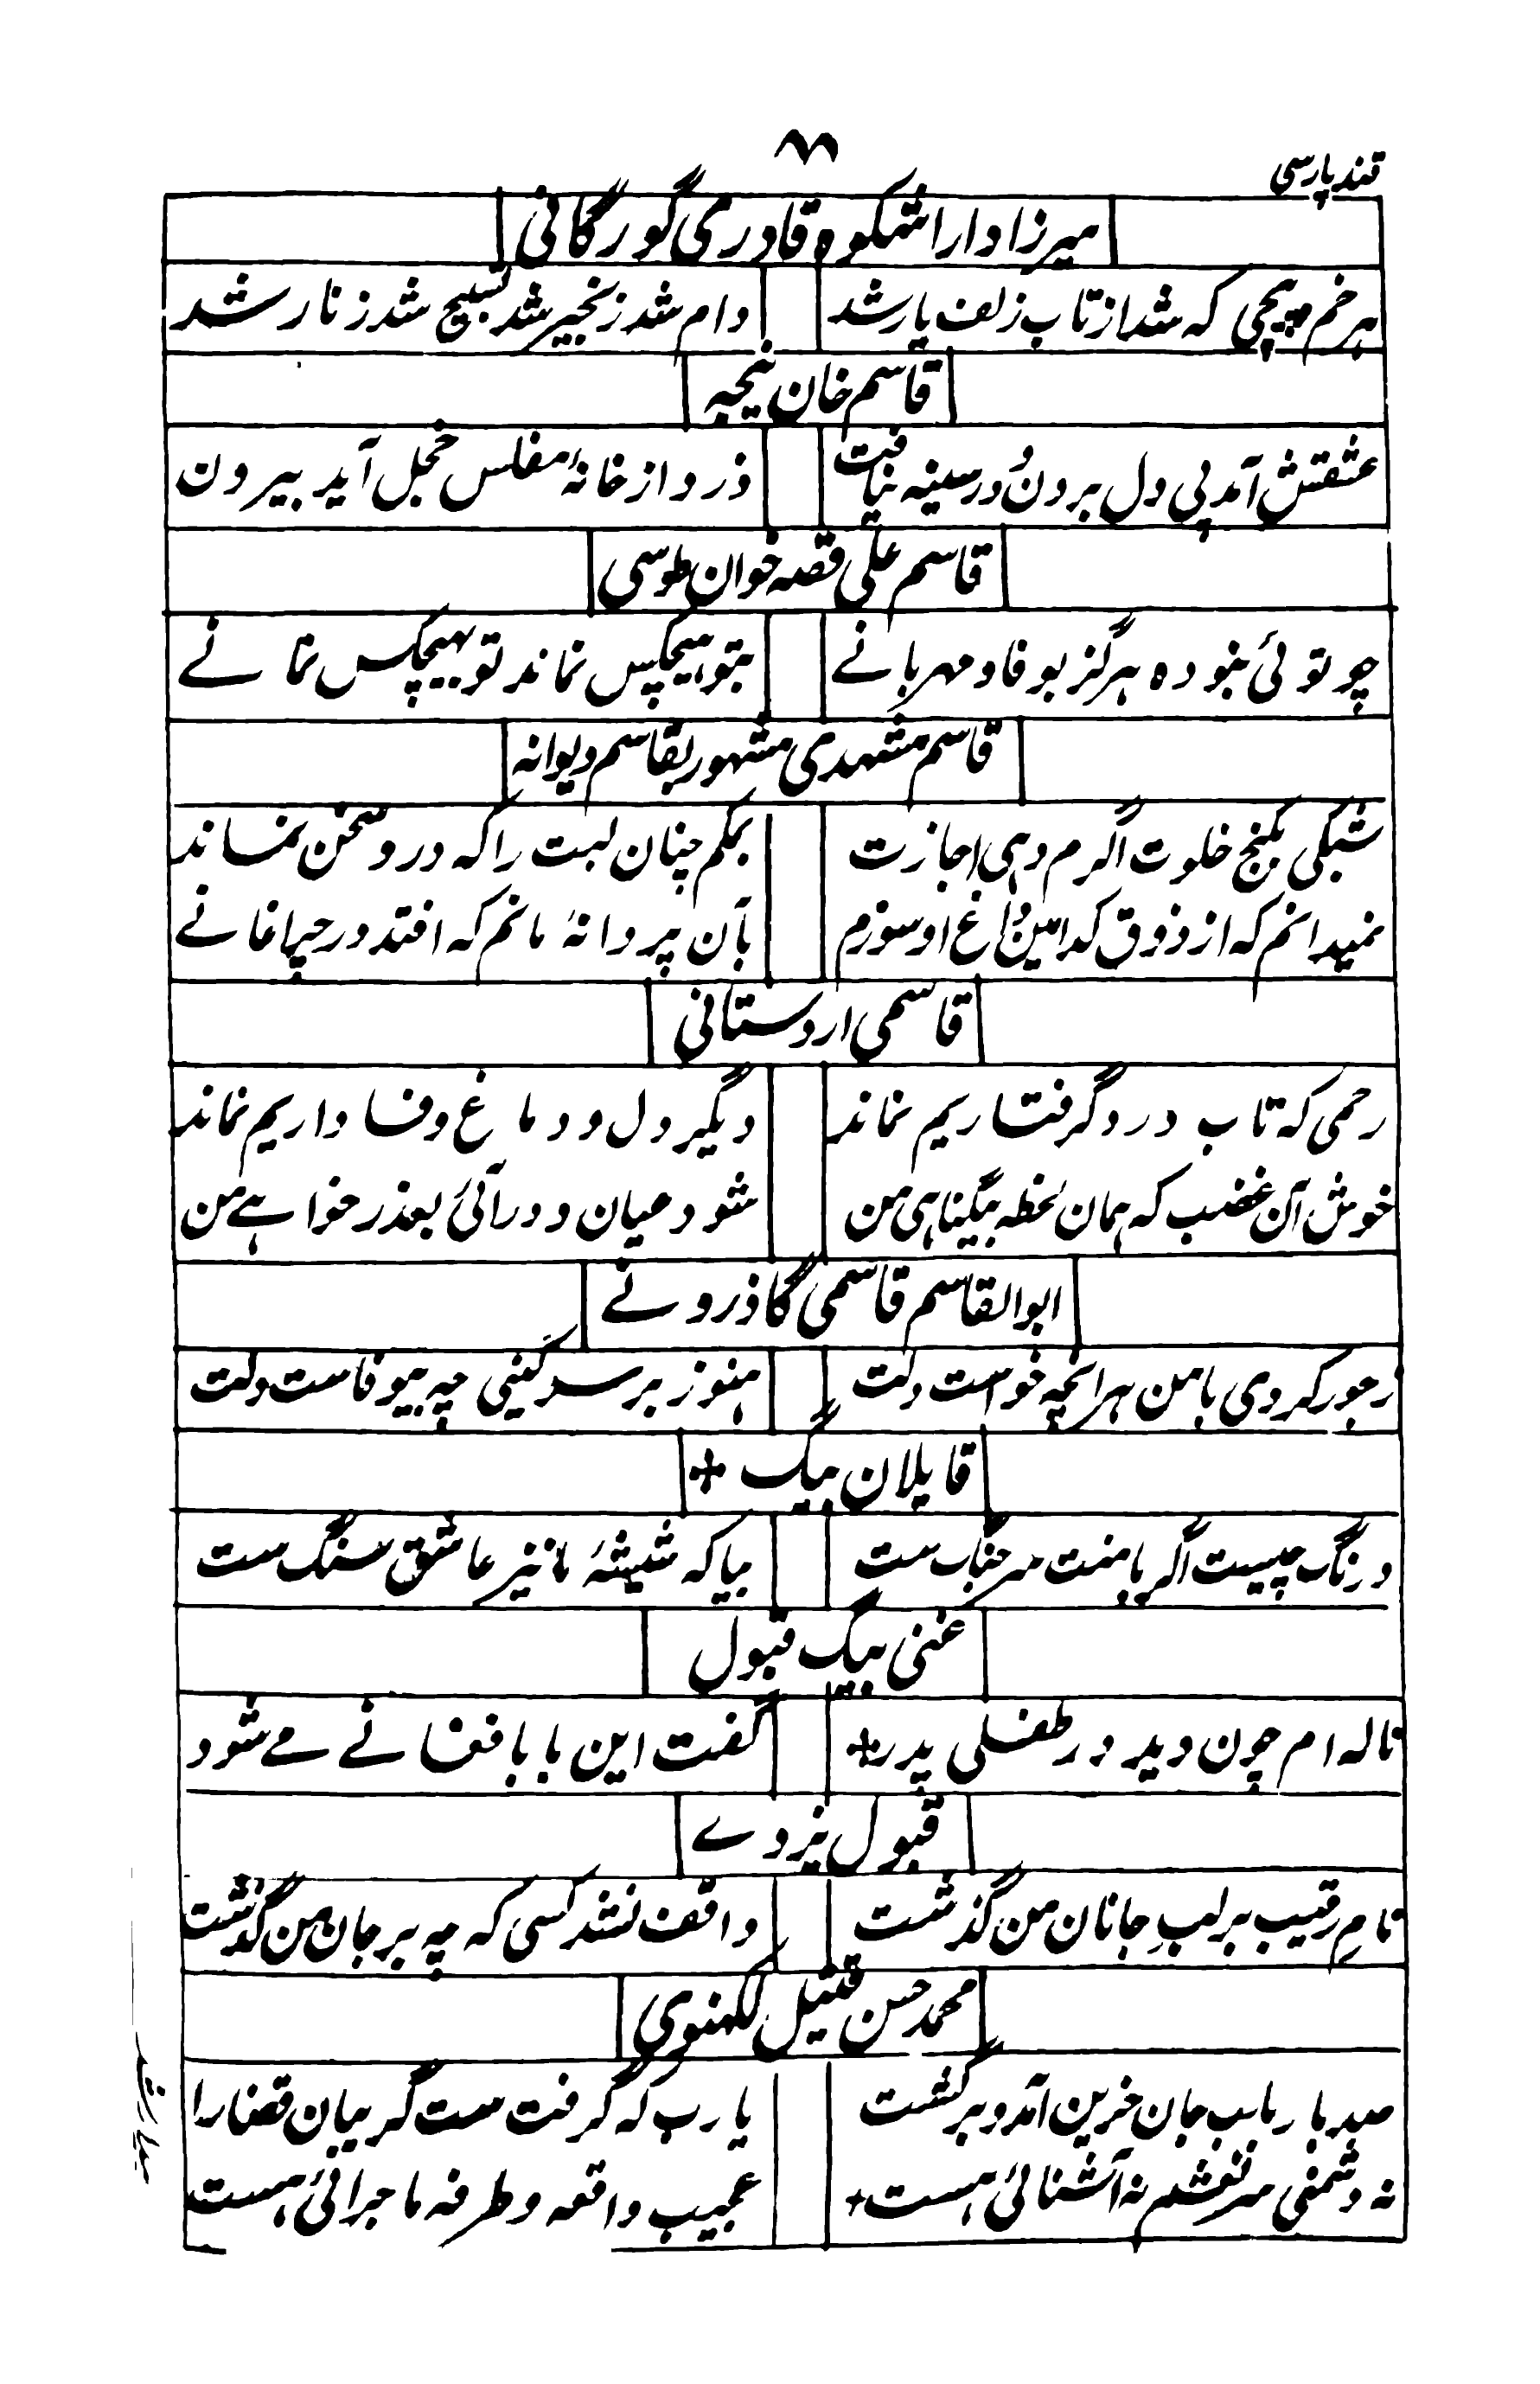 قند پارسی
میرزا دارا شکوه قادری گورگانی
هر خم و پیچی که شد از تاب زلف یار شد دام شد زنجیر شد تسبیح شد زنار شد
قاسم خان
عشقش آمد پی دل برون و در سینه نیافت دزد از خانهٔ مفلس خجل آید بیرون
قاسم علی قصه خوان طوسی
چو توئی نبوده هرگز بوفا و مهربانے بتو هیچکس نماند تو بهیچکس نمانے
قاسم مشهدی مشهور بقاسم دیوانه
شبکی بکنج خلوت اگرم دهی اجازت بمکم چنان لبت را که درو سخن نماند
نمیدانم که از ذوق کدامین داغ او سوزم بآن پروانهٔ مانم که افتد در چراغانے
قاسمی اردستانی
رحمی که تاب درد گرفتاریم نماند دیگر دل و دماغ وفاداریم نماند
خوش آن غضب که همان لحظه بیگناهی من شود عیان و درآئی بعذر خواهے من
ابوالقاسم قاسمی گاذرونے
ز جور کردی با من هرانچه خواست دلت هنوز بر سر کینی چه بیوفاست دلت
قاپلان بیگ
درنگ چیست اگر با منت سر جنگ ست بیا که شیشهٔ ما نیز عاشق سنگ ست
غنی بیگ قبول
ناله ام چون دید در طفلی پدر گفت این بابا فغانے مے شود
قبول یزدے
نامِ رقیب بر لبِ جانان من گذشت واقف نشد کسی که چه بر جان من گذشت
محمد حسن قتیل لکهنوی
صد بار بلب جان حزین آمد و برگشت یا رب که گرفت ست گریبان قضا را
نه دشمنی سر نعشم نه آشنائی هست عجیب واقعه و طرفه ماجرائی هست